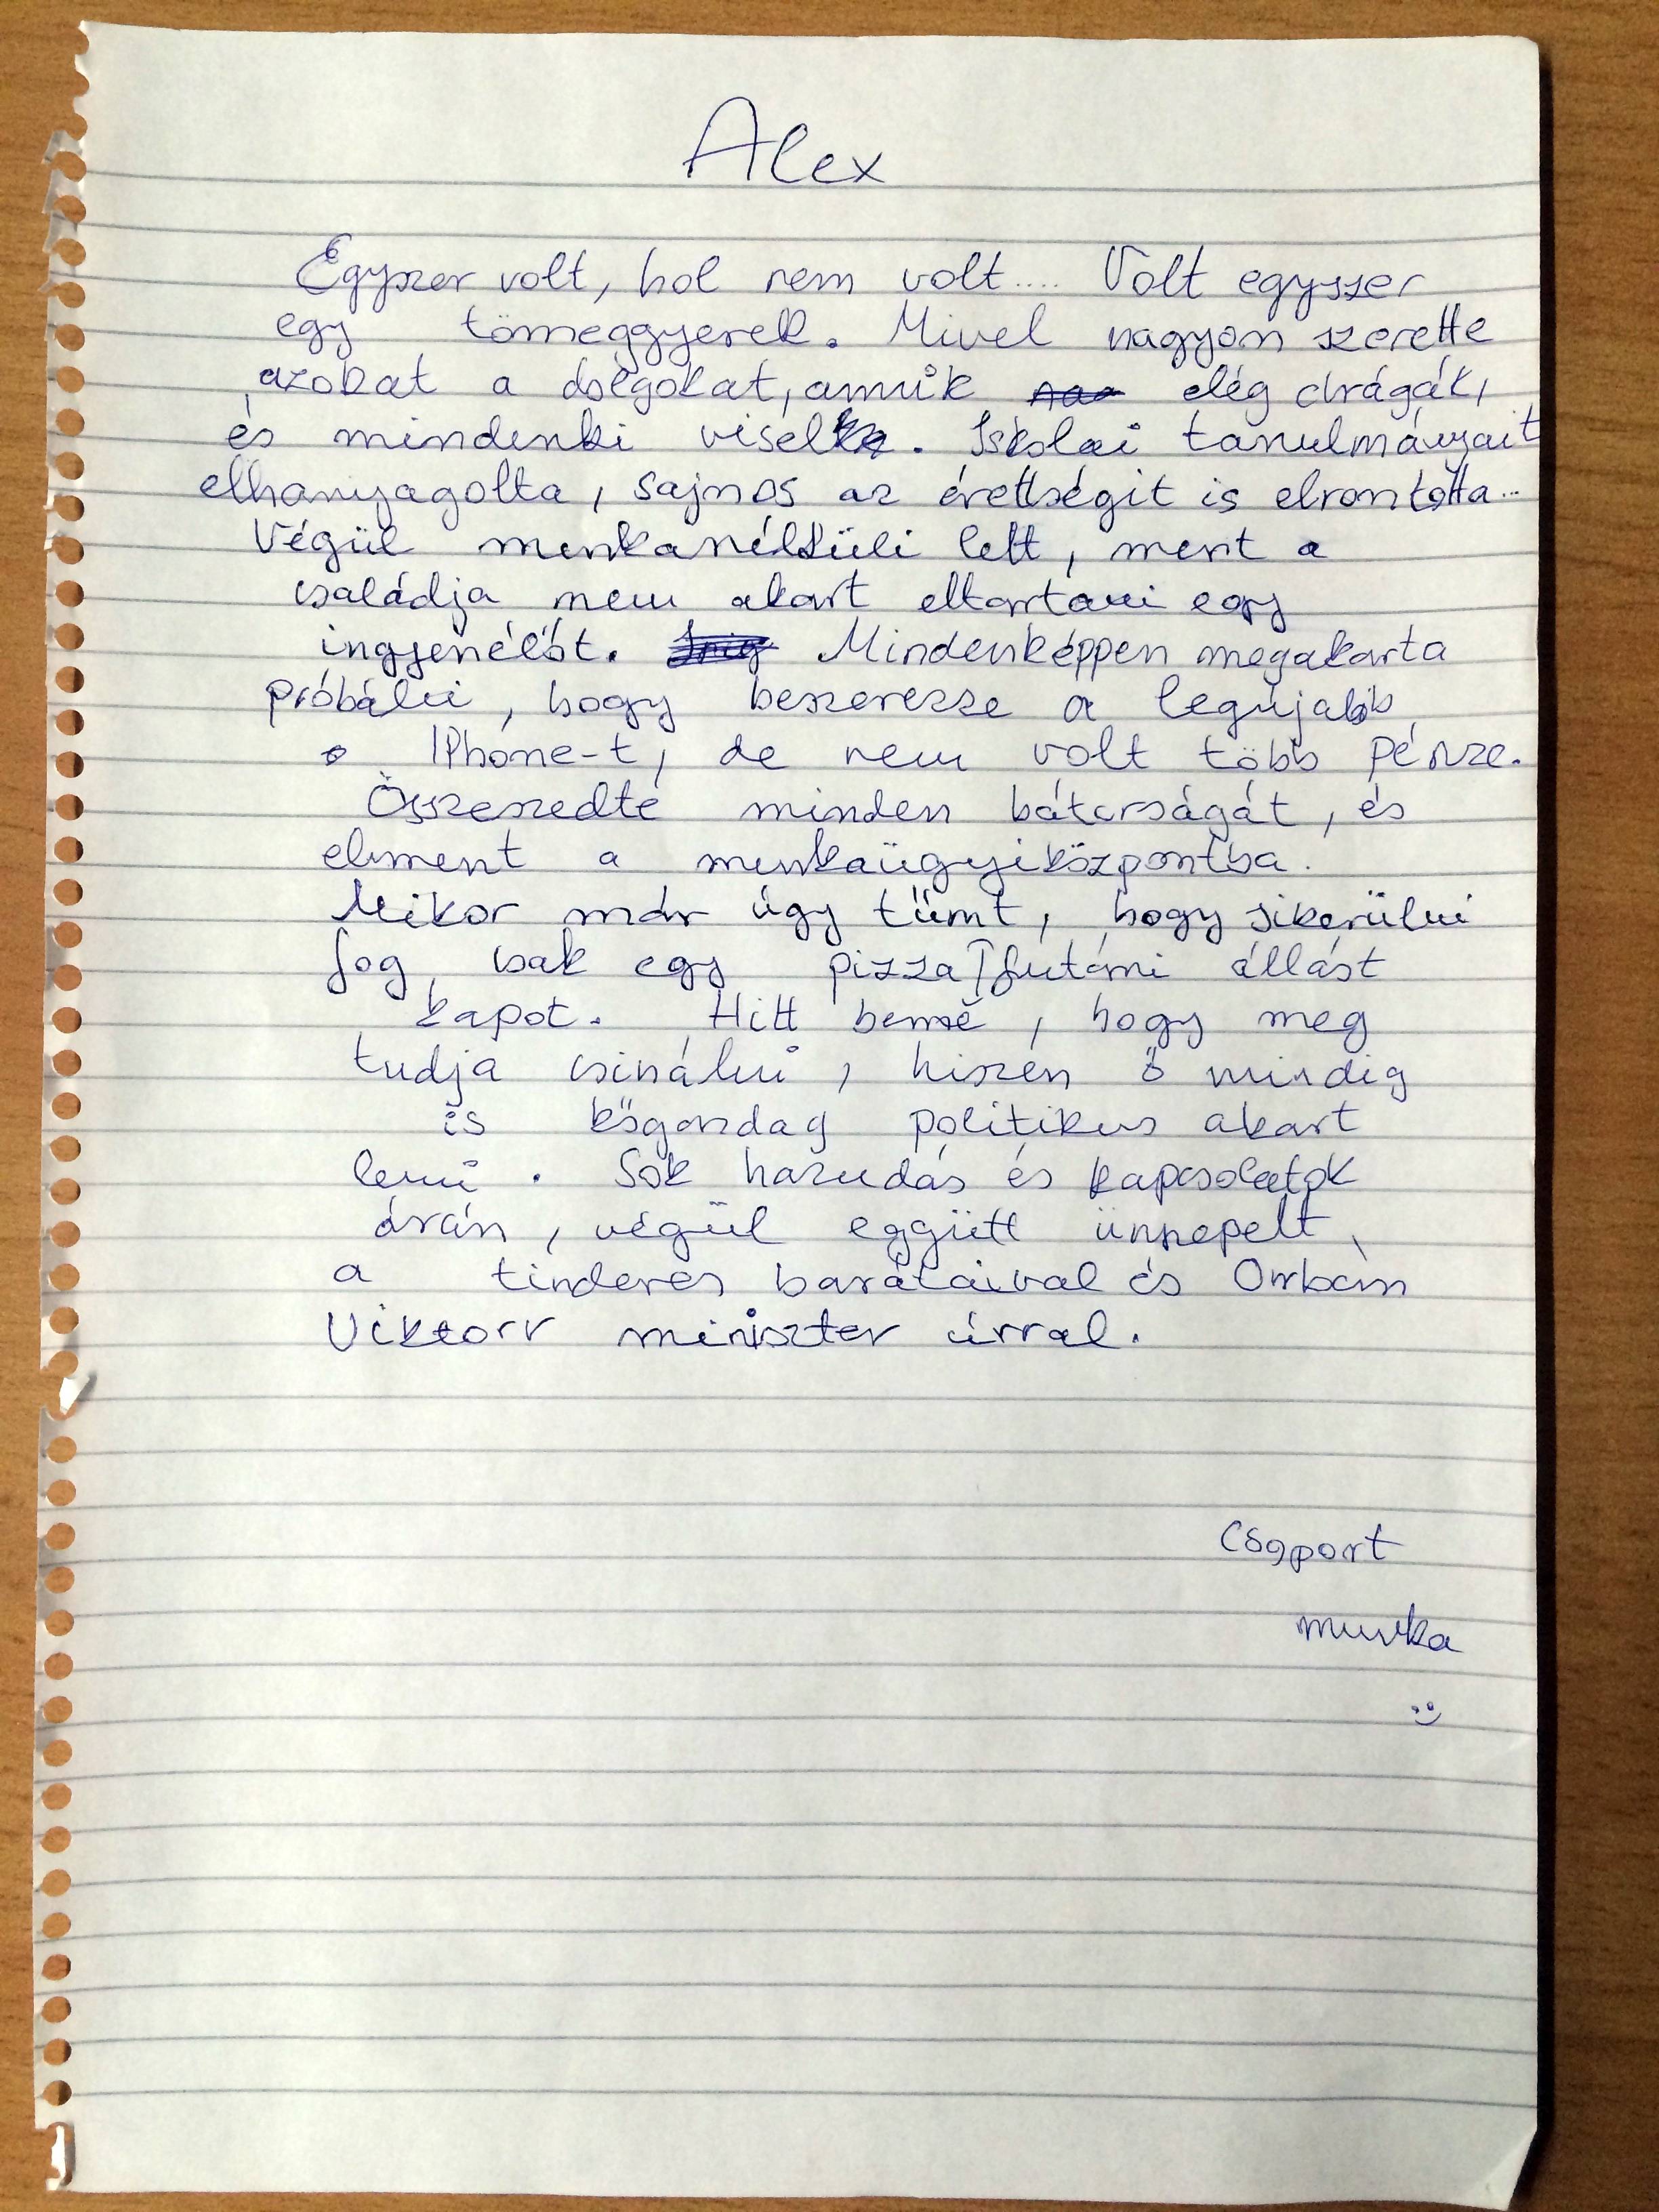 Alex
Egyszer volt, hol nem volt.... Volt egysszer
egy tömeggyerek. Mivel nagyon szerette
azokat a dolgokat, amik elég drágák,
és mindenki viselte. Iskolai tanulmányait
elhanyagolta, sajnos az érettségit is elrontotta...
Végül munkanélküli lett, mert a
családja nem akart eltartani egy
ingyenélőt. Mindenképpen megakarta
próbálni, hogy beszerezze a legújabb
IPhone-t, de nem volt több pénze.
Összeszedte minden bátorságát, és
elment a munkaügyiközpontba.
Mikor már úgy tűmt, hogy sikerülni
fog, csak egy pizza futári állást
kapot. Hitt benne, hogy meg
tudja csinálni, hiszen ő mindig
is kőgazdag politikus akart
lenni. Sok hazudás és kapcsolatok
árán, végül együtt ünnepelt,
a tinderes barátaival és Orbán
Viktorr miniszter úrral.
Csoport
munka
:)